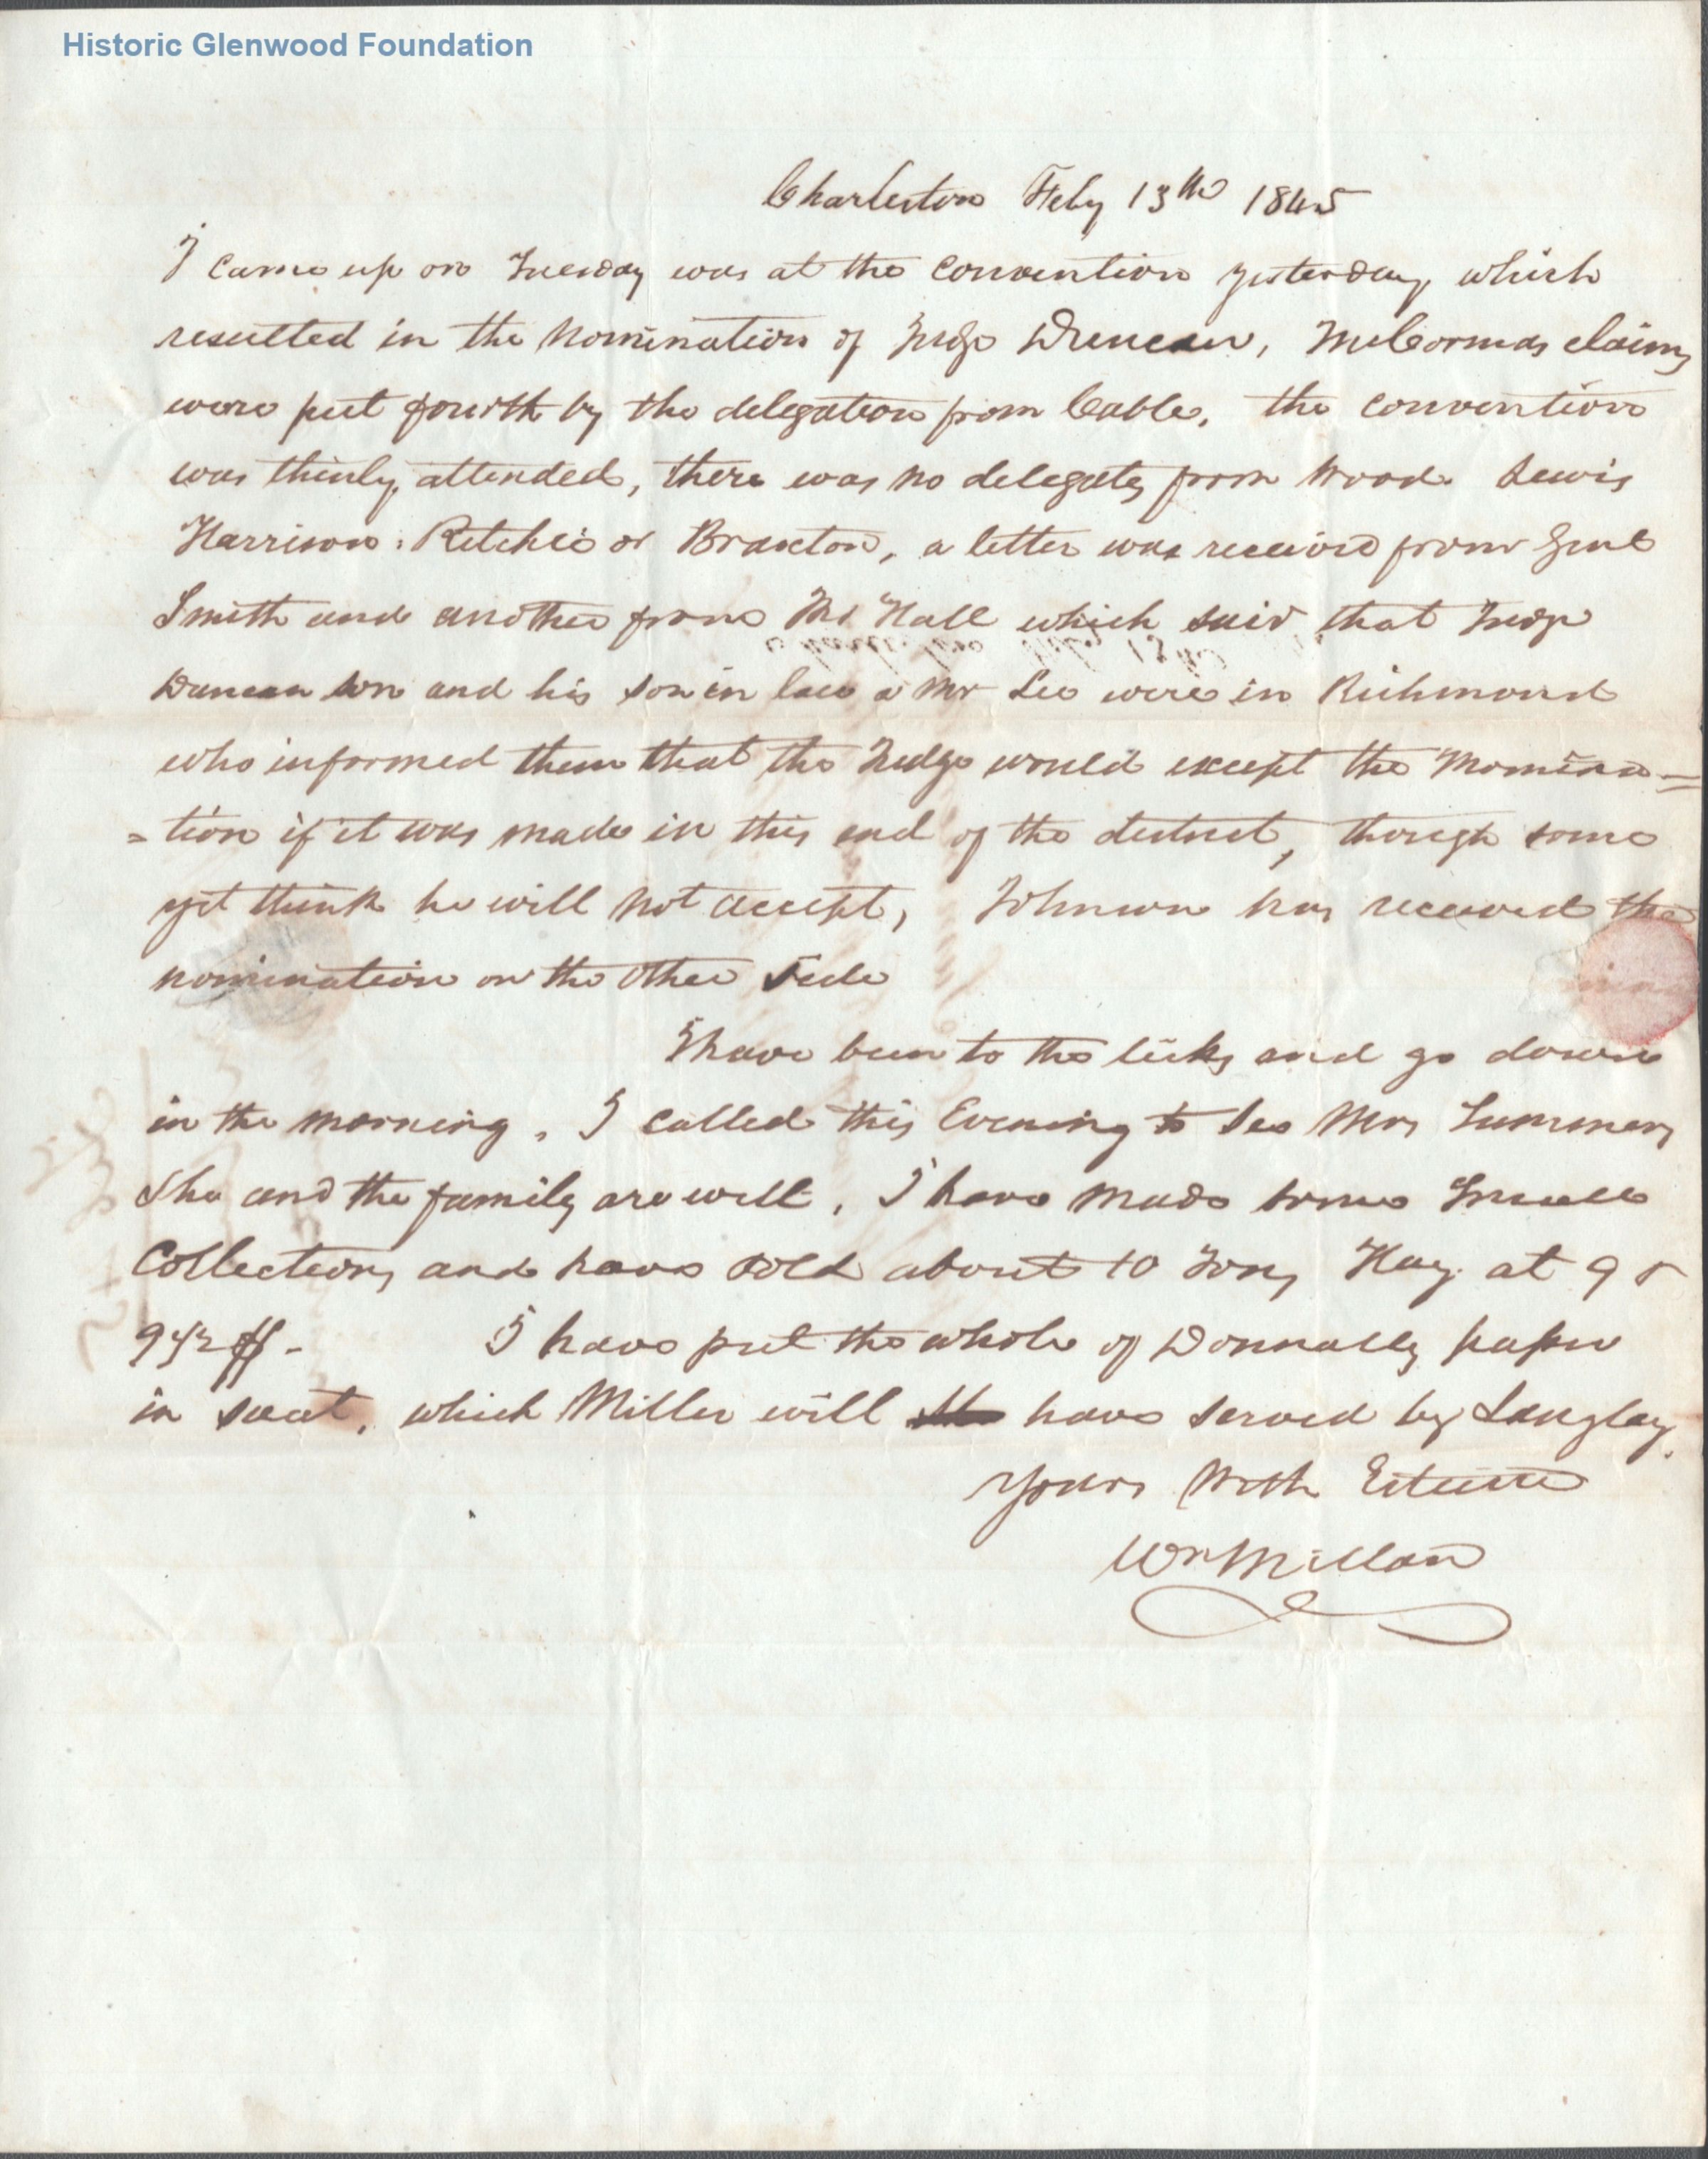 Historic Glenwood Foundation
Charleston Feby 13th 1845
I came up on Tuesday was at the convention yesterday, which
resulted in the nomination of Judge Duncan, McComas claims
were put fourth by the delegation from Cable, the convention
was thinly attended, there was no delegates from Wood Lewis
Harrison, Ritchie or Braxton, a letter was received from Genl
Smith and another from Mr Hall which said that Judge
Duncan son and his son in law a Mr Lee were in Richmond
who informed them that the Judge would except the Nomina=
=tion if it was made in this end of the district, though some
yet think he will not accept, Johnson has received the
nomination on the other side
I have been to the licks and go down
in the morning, I called this Evening to see Mrs Summers
she and the family are well, I have made some small
Collections and have sold about 10 Tons Hay at 9
9 1/2 $ - I have put the whole of Donnally paper
in suit, which Miller will have served by Langley.
Yours With Esteem
Wm Millan